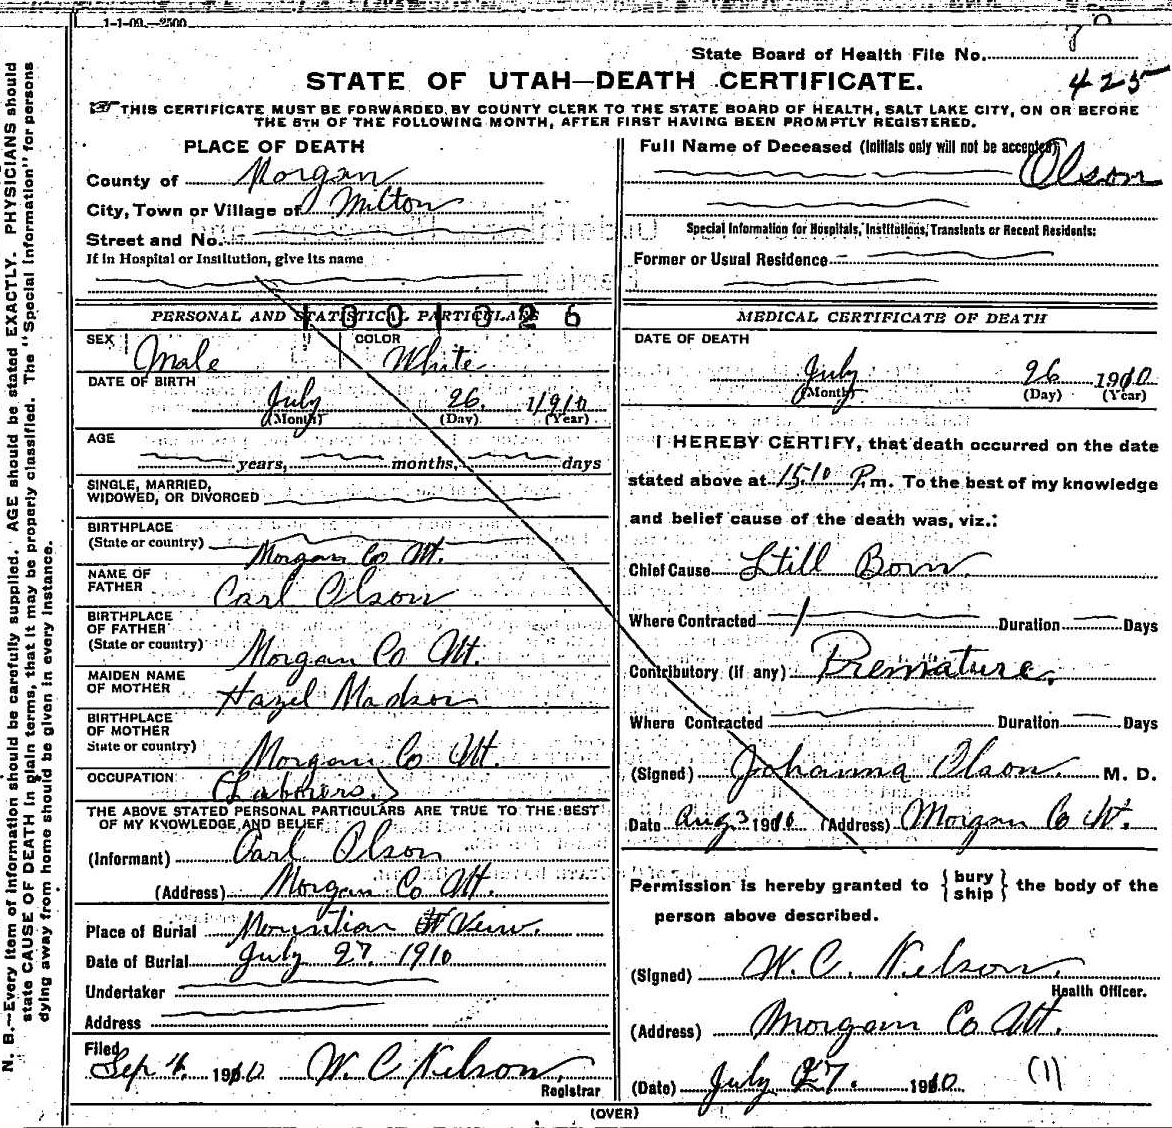 1-1-09.—2500
State Board of Health File No.
425
STATE OF UTAH—DEATH CERTIFICATE.
THIS CERTIFICATE MUST BE FORWARDED BY COUNTY CLERK TO THE STATE BOARD OF HEALTH, SALT LAKE CITY, ON OR BEFORE
THE 5TH OF THE FOLLOWING MONTH, AFTER FIRST HAVING BEEN PROMPTLY REGISTERED.
N. B.—Every item of information should be carefully supplied. AGE should be stated EXACTLY. PHYSICIANS should
state CAUSE OF DEATH in plain terms, that it may be properly classified. The "Special Information" for persons
dying away from home should be given in every instance.
PLACE OF DEATH
County of Morgan
City, Town or Village of Milton
Street and No.
If in Hospital or Institution, give its name
PERSONAL AND STATISTICAL PARTICULARS
1001026
SEX Male COLOR White
DATE OF BIRTH
July 26. 1910
(Month) (Day) (Year)
AGE
years, months, days
SINGLE, MARRIED,
WIDOWED, OR DIVORCED
BIRTHPLACE
(State or country) Morgan Co Ut.
NAME OF
FATHER Carl Olson
BIRTHPLACE
OF FATHER
(State or country) Morgan Co Ut.
MAIDEN NAME
OF MOTHER Hazel Madson
BIRTHPLACE
OF MOTHER
State or country) Morgan Co Ut.
OCCUPATION (Laborers.)
THE ABOVE STATED PERSONAL PARTICULARS ARE TRUE TO THE BEST
OF MY KNOWLEDGE AND BELIEF
(Informant) Carl Olson
(Address) Morgan Co Ut.
Place of Burial Mountian Veiw.
Date of Burial July 27. 1910
Undertaker
Address
Filed Sep 4. 1910 W. C. Nelson
Registrar
Full Name of Deceased (Initials only will not be accepted)
Olson
Special Information for Hospitals, Institutions, Transients or Recent Residents:
Former or Usual Residence
MEDICAL CERTIFICATE OF DEATH
DATE OF DEATH
July 26 1910
(Month) (Day) (Year)
I HEREBY CERTIFY, that death occurred on the date
stated above at P. m. To the best of my knowledge
and belief cause of the death was, viz.:
Chief Cause Still Born
Where Contracted Duration Days
Contributory (if any) Premature.
Where Contracted Duration Days
(Signed) Johanna Olson. M. D.
Date Aug 3 1910 (Address) Morgan Co Ut.
Permission is hereby granted to { bury ship } the body of the
person above described.
(Signed) W. C. Nelson.
Health Officer.
(Address) Morgan Co Ut.
(Date) July 27. 1910 (1)
(OVER)